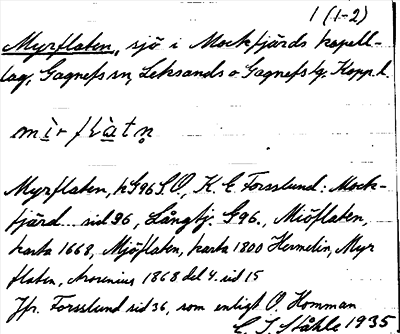 1 (1-2)
Myrflaten, sjö i Mockfjärds kapell-
lag, Gagnefs sn, Leksands o Gagnefs tg. Kopp. l.
Myrflaten, k G96 S.O, K. E Forsslund: Mock-
fjärd... sid 96, Långbj. G96., Miöflaten,
karta 1668, Mjöflaten, karta 1800 Hermelin, Myr
flaten, Arosenius 1868 del 4. sid 15
Jfr. Forsslund sid 36, som enligt O. Homman
C. I. Ståhle 1935